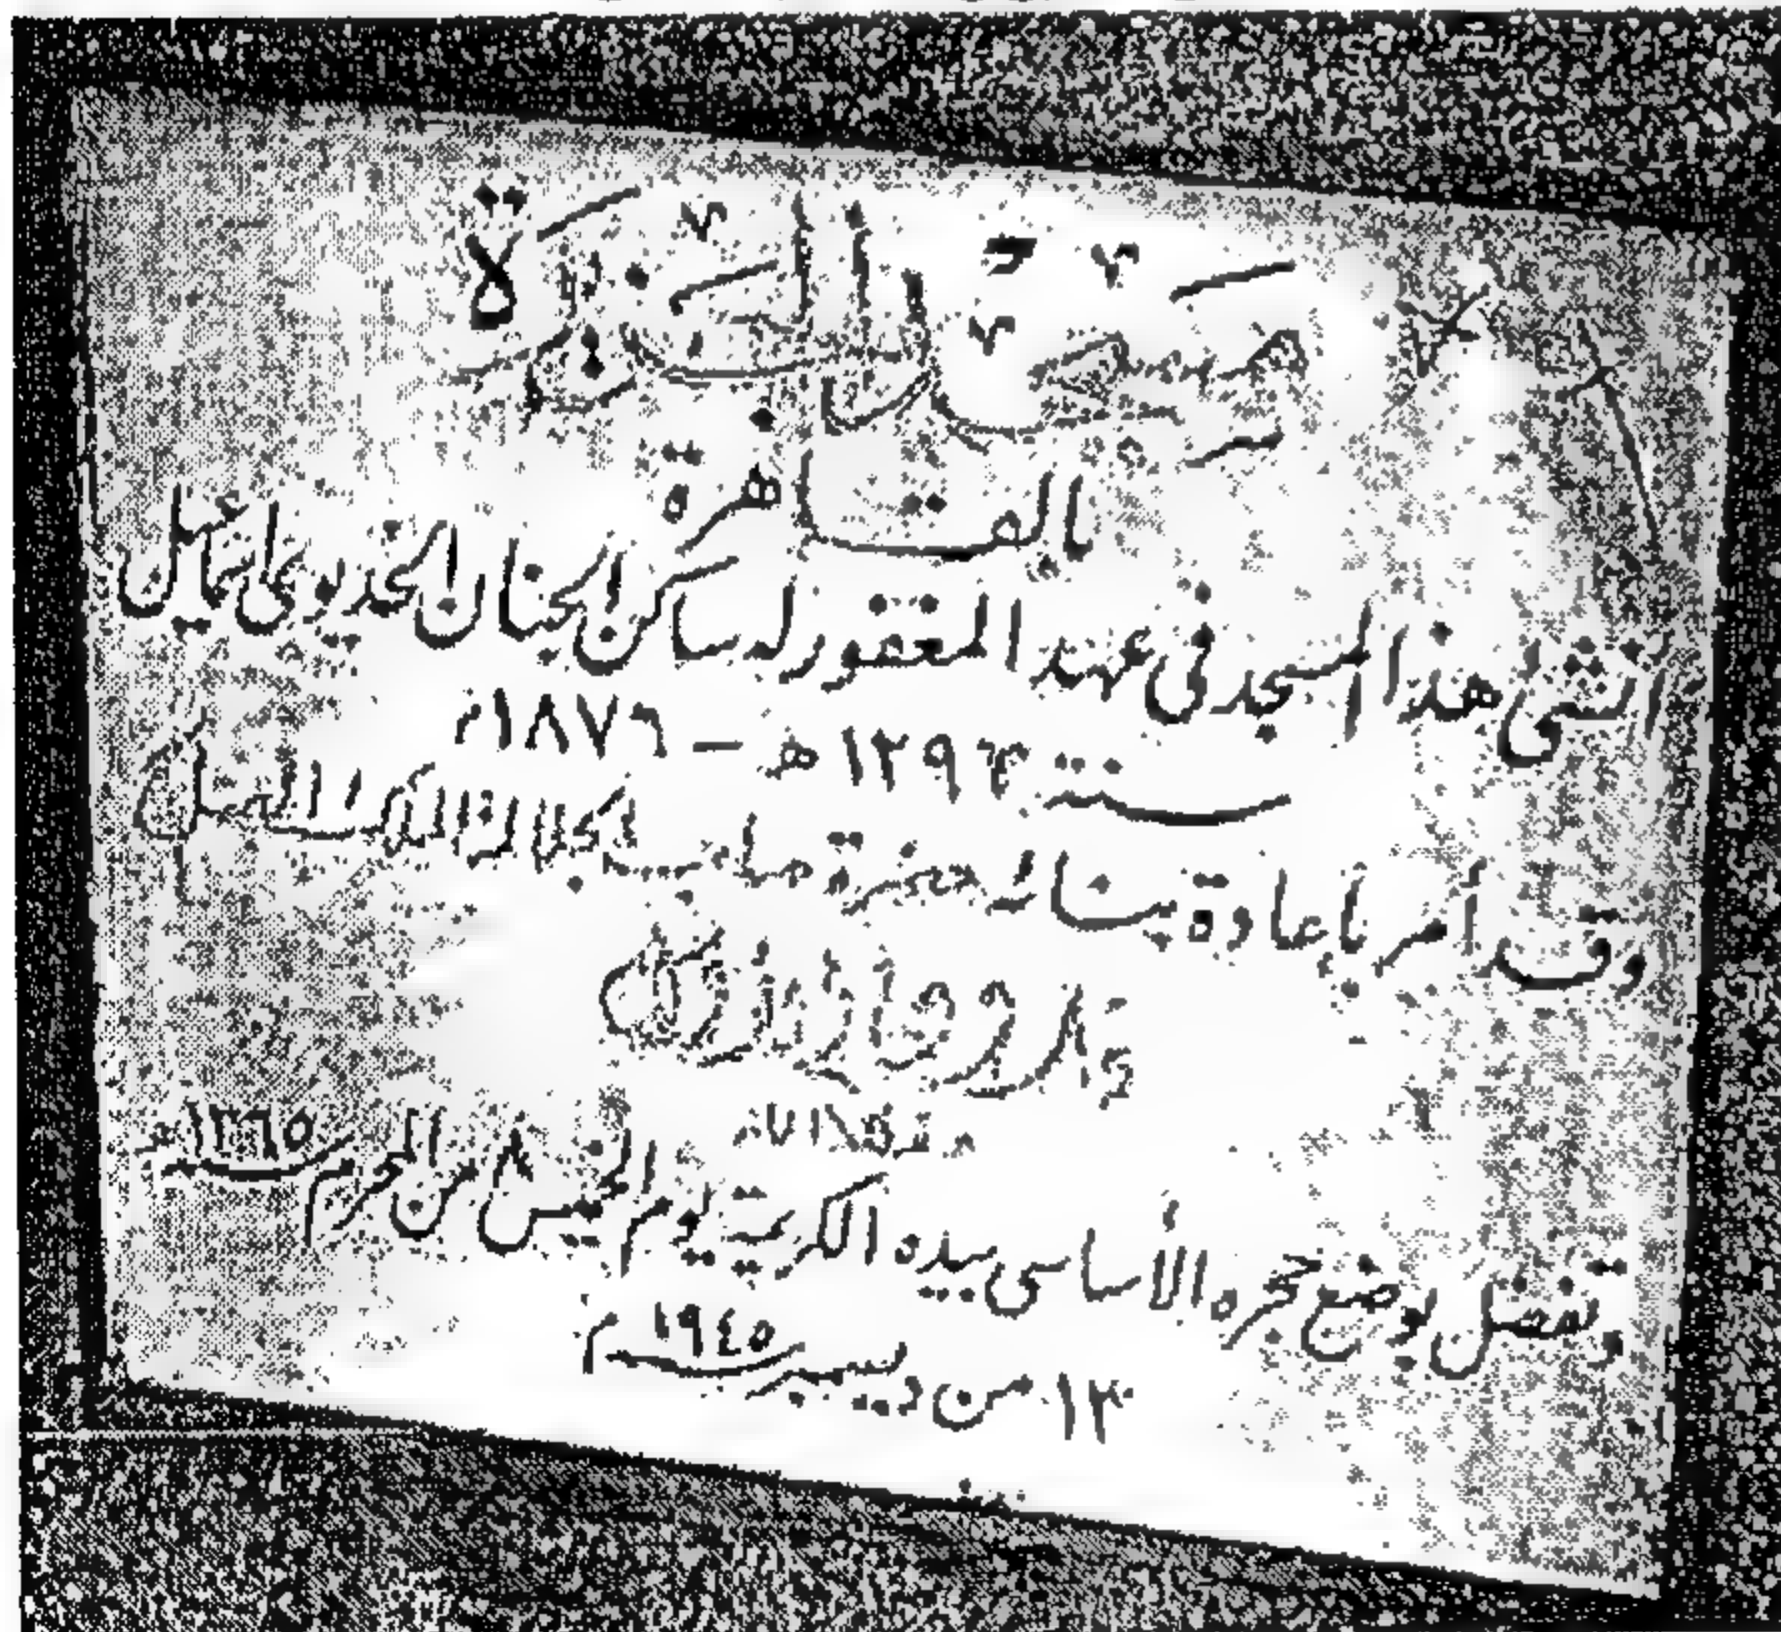 مسجد
بالقاهرة
انشئ هذا المسجد فى عهد المغفور له ساكن الجنان الخديوى اسماعيل
سنة ١٢٩٣ هـ - ١٨٧٦م
وقد أمر بإعادة بنائه حضرة صاحب الجلالة الملك
فاروق الأول
وتفضل بوضع حجره الأساسى بيده الكريمة يوم الخميس ٨ من المحرم سنة ١٣٦٥
١٣ من ديسمبر سنة ١٩٤٥ م